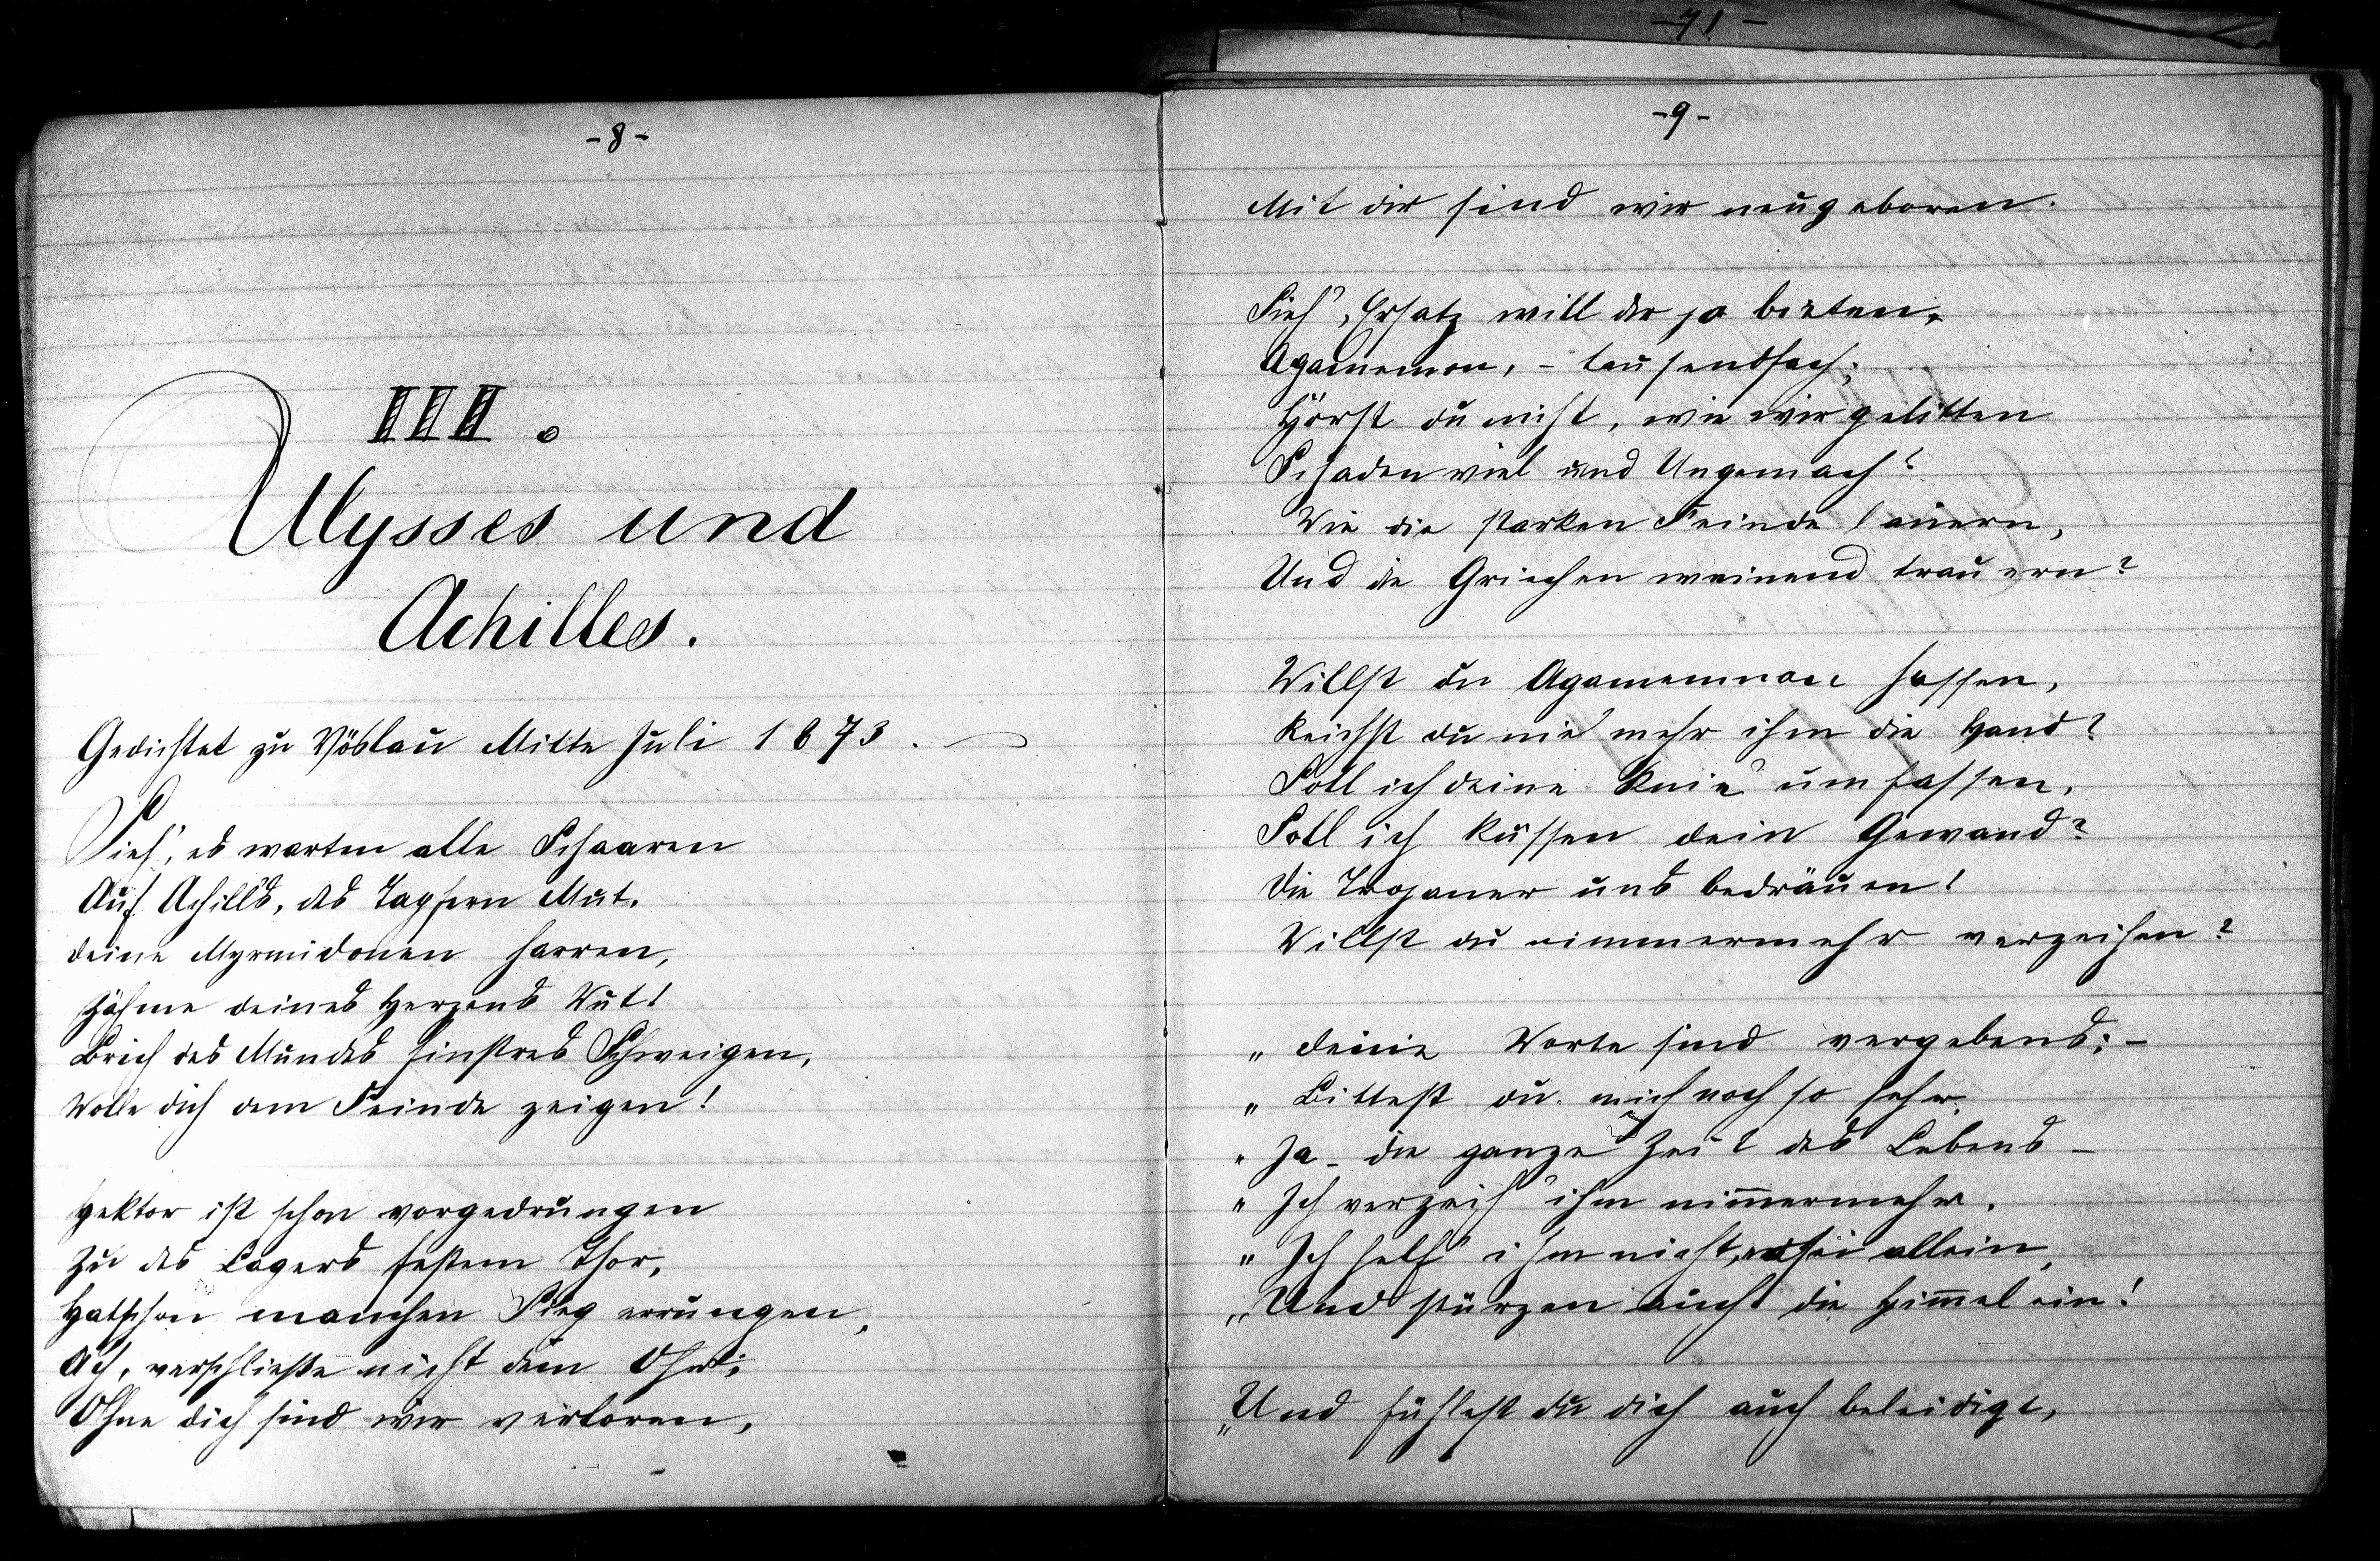 -8-
III.
Ulysses und
Achilles.
Gedichtet zu Vöslau Mitte Juli 1873.
Sieh', es warten alle Schaaren
Auf Achill's, des Tapfern Mut.
Deine Myrmidonen harren,
Zähme deines Herzens Wut!
Brich des Mundes finstres Schweigen,
Wolle dich dem Feinde zeigen!
Hektor ist schon vorgedrungen
Zu des Lagers festem Thor,
Hat schon manchen Sieg errungen,
Ach, verschließe nicht dein Ohr;
Ohne dich sind wir verloren,
-71-
-9-
Mit dir sind wir neugeboren.
Sieh', Ersatz will dir ja bieten,
Agamemnon, - tausendfach;
Hörst du nicht, wie wir gelitten
Schaden viel und Ungemach?
Wie die starken Feinde lauern,
Und die Griechen weinend trauern?
Willst du Agamemnon hassen,
Reichst du nie mehr ihm die Hand?
Soll ich deine Knie' umfassen,
Soll ich küssen dein Gewand?
Die Trojaner uns bedräuen!
Willst du nimmermehr verzeihen?
„ Deine Worte sind vergebens; -
„ Bittest du mich noch so sehr,
„ Ja - die ganze Zeit des Lebens -
„ Ich verzeih' ihm nim̅ermehr.
„ Ich helf' ihm nicht, er sei allein,
„ Und stürzen auch die Him̅el ein!
„ Und fühlest du dich auch beleidigt,